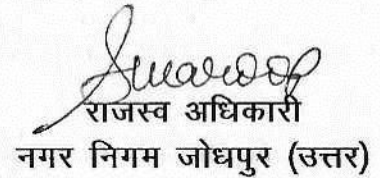 राजस्व अधिकारी
नगर निगम जोधपुर (उत्तर)